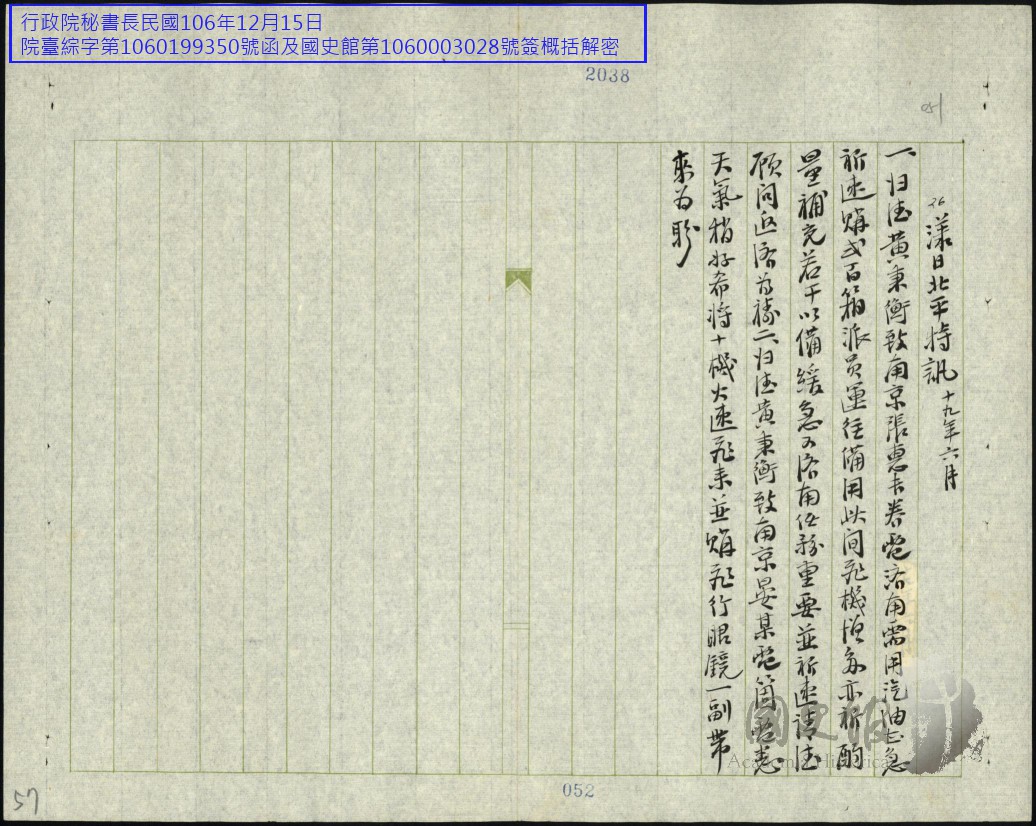 行政院秘書長民國106年12月15日
院臺綜字第1060199350號函及國史館第1060003028號簽概括解密
2038
051
26 漾日北平特訊 十九年六月
一、归德黄秉衡致南京張惠長養電洛甬需用汽油至急
祈速購弍百箱派員運往備用此间飛機增多亦祈酌
量補充若干以備緩急又洛甬任務重要並祈速請德
顾问返洛为禱二、归德黄秉衡致南京晏某電箇電悉
天氣稍好希将十機火速飛来並購飛行眼鏡一副帶
來为盼
國史館
Academia Historica
052
57